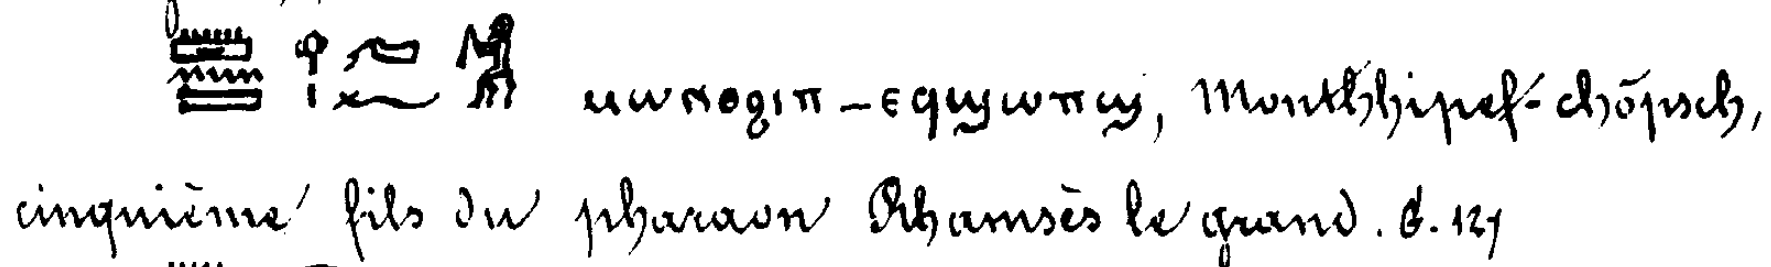 ⲙⲱⲛⲑϩⲓⲡ–ⲉϥϣⲱⲡϣ, Monthhipef-chōpsch,
cinquième fils du pharaon Rhamsès le grand. G. 127